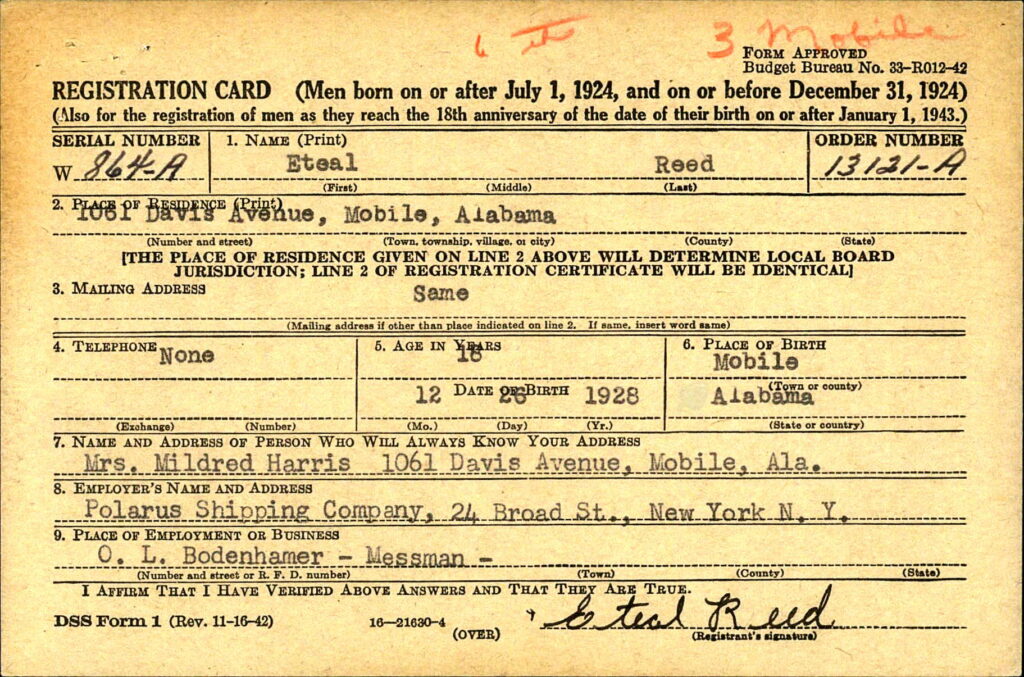 6 th 3 Mobile
FORM APPROVED
Budget Bureau No. 33-R012-42
REGISTRATION CARD (Men born on or after July 1, 1924, and on or before December 31, 1924)
(Also for the registration of men as they reach the 18th anniversary of the date of their birth on or after January 1, 1943.)
SERIAL NUMBER 1. NAME (Print) ORDER NUMBER
W 864-A Eteal Reed 13121-A
(First) (Middle) (Last)
2. PLACE OF RESIDENCE (Print)
1061 Davis Avenue, Mobile, Alabama
(Number and street) (Town, township, village, or city) (County) (State)
[THE PLACE OF RESIDENCE GIVEN ON LINE 2 ABOVE WILL DETERMINE LOCAL BOARD
JURISDICTION; LINE 2 OF REGISTRATION CERTIFICATE WILL BE IDENTICAL]
3. MAILING ADDRESS
Same
(Mailing address if other than place indicated on line 2. If same, insert word same)
4. TELEPHONE 5. AGE IN YEARS 6. PLACE OF BIRTH
None 18 Mobile
DATE OF BIRTH (Town or county)
12 26 1928 Alabama
(Exchange) (Number) (Mo.) (Day) (Yr.) (State or country)
7. NAME AND ADDRESS OF PERSON WHO WILL ALWAYS KNOW YOUR ADDRESS
Mrs. Mildred Harris 1061 Davis Avenue, Mobile, Ala.
8. EMPLOYER'S NAME AND ADDRESS
Polarus Shipping Company, 24 Broad St., New York N. Y.
9. PLACE OF EMPLOYMENT OR BUSINESS
O. L. Bodenhamer - Messman -
(Number and street or R. F. D. number) (Town) (County) (State)
I AFFIRM THAT I HAVE VERIFIED ABOVE ANSWERS AND THAT THEY ARE TRUE.
DSS Form 1 (Rev. 11-16-42) 16—21630-4 (OVER) Eteal Reed
(Registrant's signature)